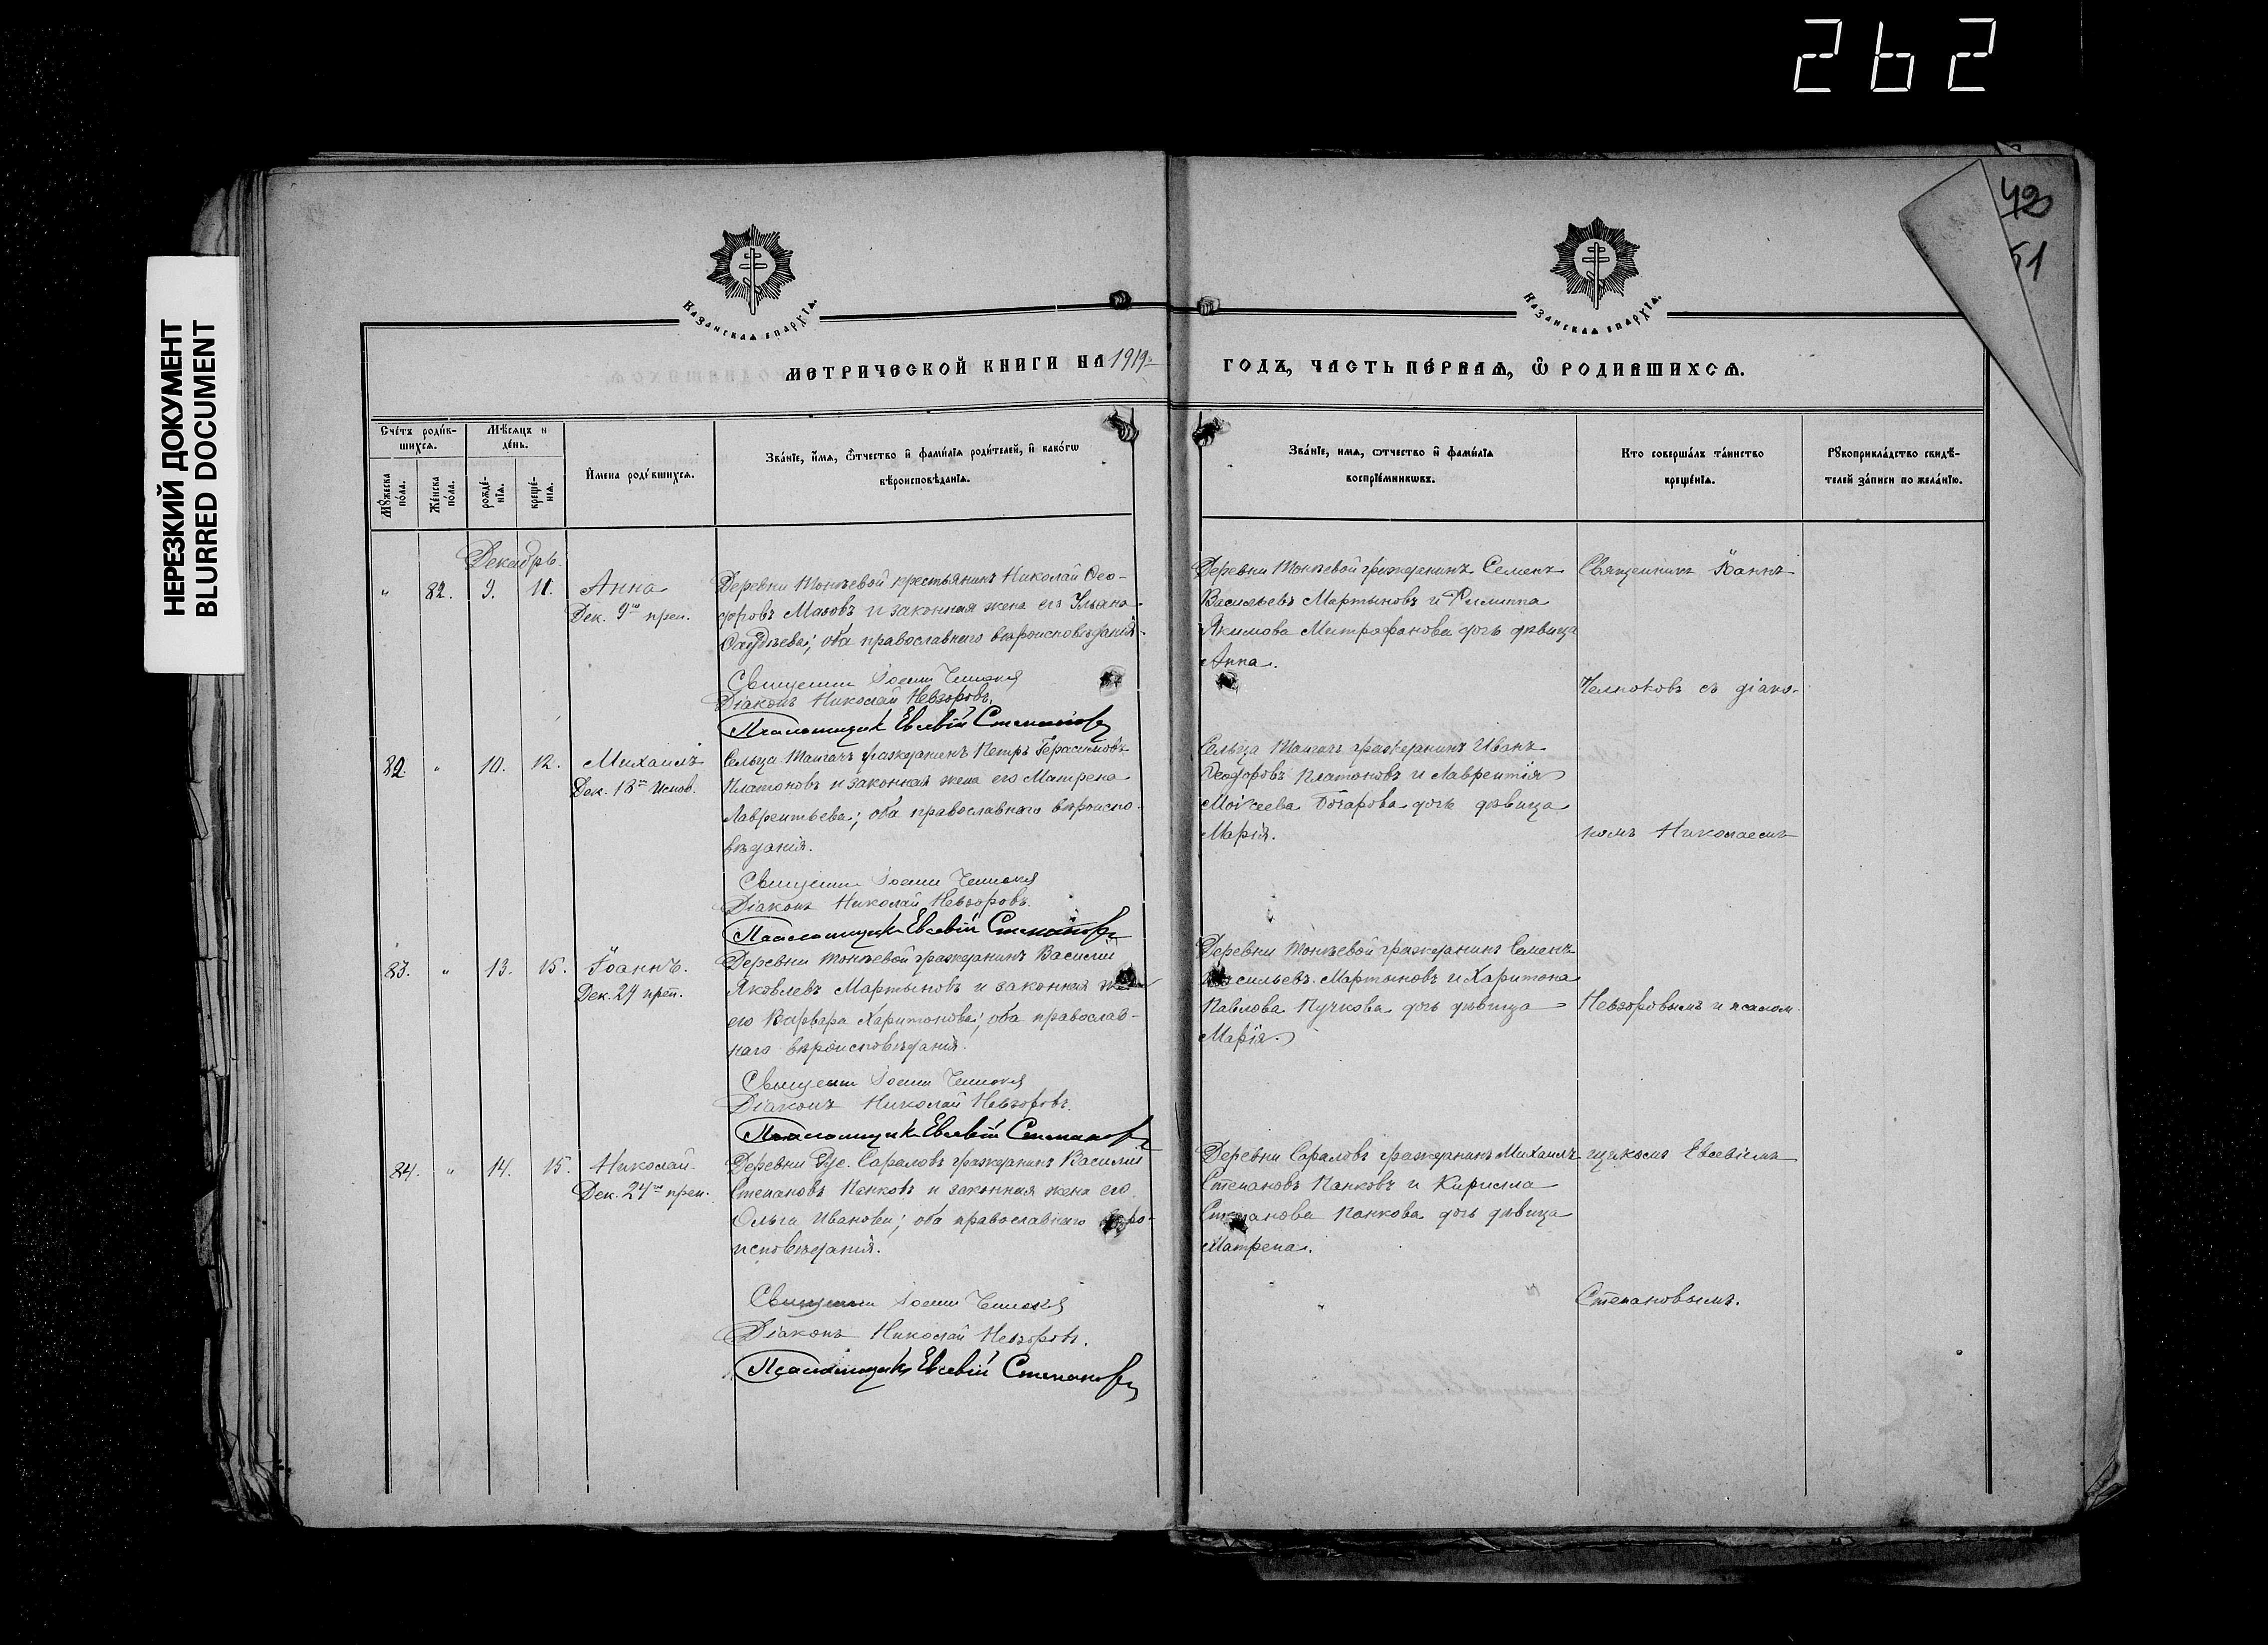 262
НЕРЕЗКИЙ ДОКУМЕНТ
BLURRED DOCUMENT
42
51
Казанская епархія.
Казанская епархія.
МЕТРИЧЕСКОЙ КНИГИ НА 1919
ГОДЪ, ЧАСТЬ ПЕРВАЯ, Ѽ РОДИВШИХСЯ.
Счетъ родив-
шихся.
Мѣсяцъ и
день.
Мужеска
пола.
Женска
пола.
рожде-
нія.
креще-
нія.
Имена родившихся.
Званіе, имя, ѿчество и фамилія родителей, и какогѡ
вѣроисповѣданія.
Званіе, имя, ѿчество и фамилія
воспріемникѡвъ.
Кто совершалъ таинство
крещенія.
Рукоприкладство свидѣ-
телей записи по желанію.
Декабрь.
" 82. 9. 11. Анна
Дек. 9го преп.
Деревни крестьянинъ Николай Ѳео-
доровъ и законная жена его Ульяна
оба православнаго вѣроисповѣданія.
Священникъ Іоаннъ
Діаконъ Николай Невзоровъ.
Псаломщикъ Евсевій Степановъ
Деревни гражданинъ Семенъ
Васильевъ Мартыновъ и Филиппа
Якимова Митрофанова дочь дѣвица
Анна.
Священникъ Іоаннъ
съ діако-
82. " 10. 12. Михаилъ
Дек. 18го Испов.
Сельца гражданинъ Петръ Герасимовъ
Платоновъ и законная жена его Матрена
Лаврентьева; оба православнаго вѣроиспо-
вѣданія.
Священникъ Іоаннъ
Діаконъ Николай Невзоровъ.
Псаломщикъ Евсевій Степановъ
Сельца гражданинъ Иванъ
Ѳеодоровъ Платоновъ и Лаврентія
Моисеева Бочарова дочь дѣвица
Марія.
номъ Николаемъ
83. " 13. 15. Іоаннъ.
Дек. 24 преп.
Деревни гражданинъ Василій
Яковлевъ Мартыновъ и законная жена
его Варвара Харитонова; оба православ-
наго вѣроисповѣданія.
Священникъ Іоаннъ
Діаконъ Николай Невзоровъ.
Псаломщикъ Евсевій Степановъ
Деревни гражданинъ Семенъ
Васильевъ Мартыновъ и Харитона
Павлова Пучкова дочь дѣвица
Марія.
Невзоровымъ и псалом-
84. " 14. 15. Николай
Дек. 24го преп.
Деревни Сараловъ гражданинъ Василій
Степановъ Панковъ и законная жена его
Ольга Иванова; оба православнаго вѣро-
исповѣданія.
Священникъ Іоаннъ
Діаконъ Николай Невзоровъ.
Псаломщикъ Евсевій Степановъ
Деревни Сараловъ гражданинъ Михаилъ
Степановъ Панковъ и Кирилла
Степанова Панкова дочь дѣвица
Матрена.
щикомъ Евсевіемъ
Степановымъ.